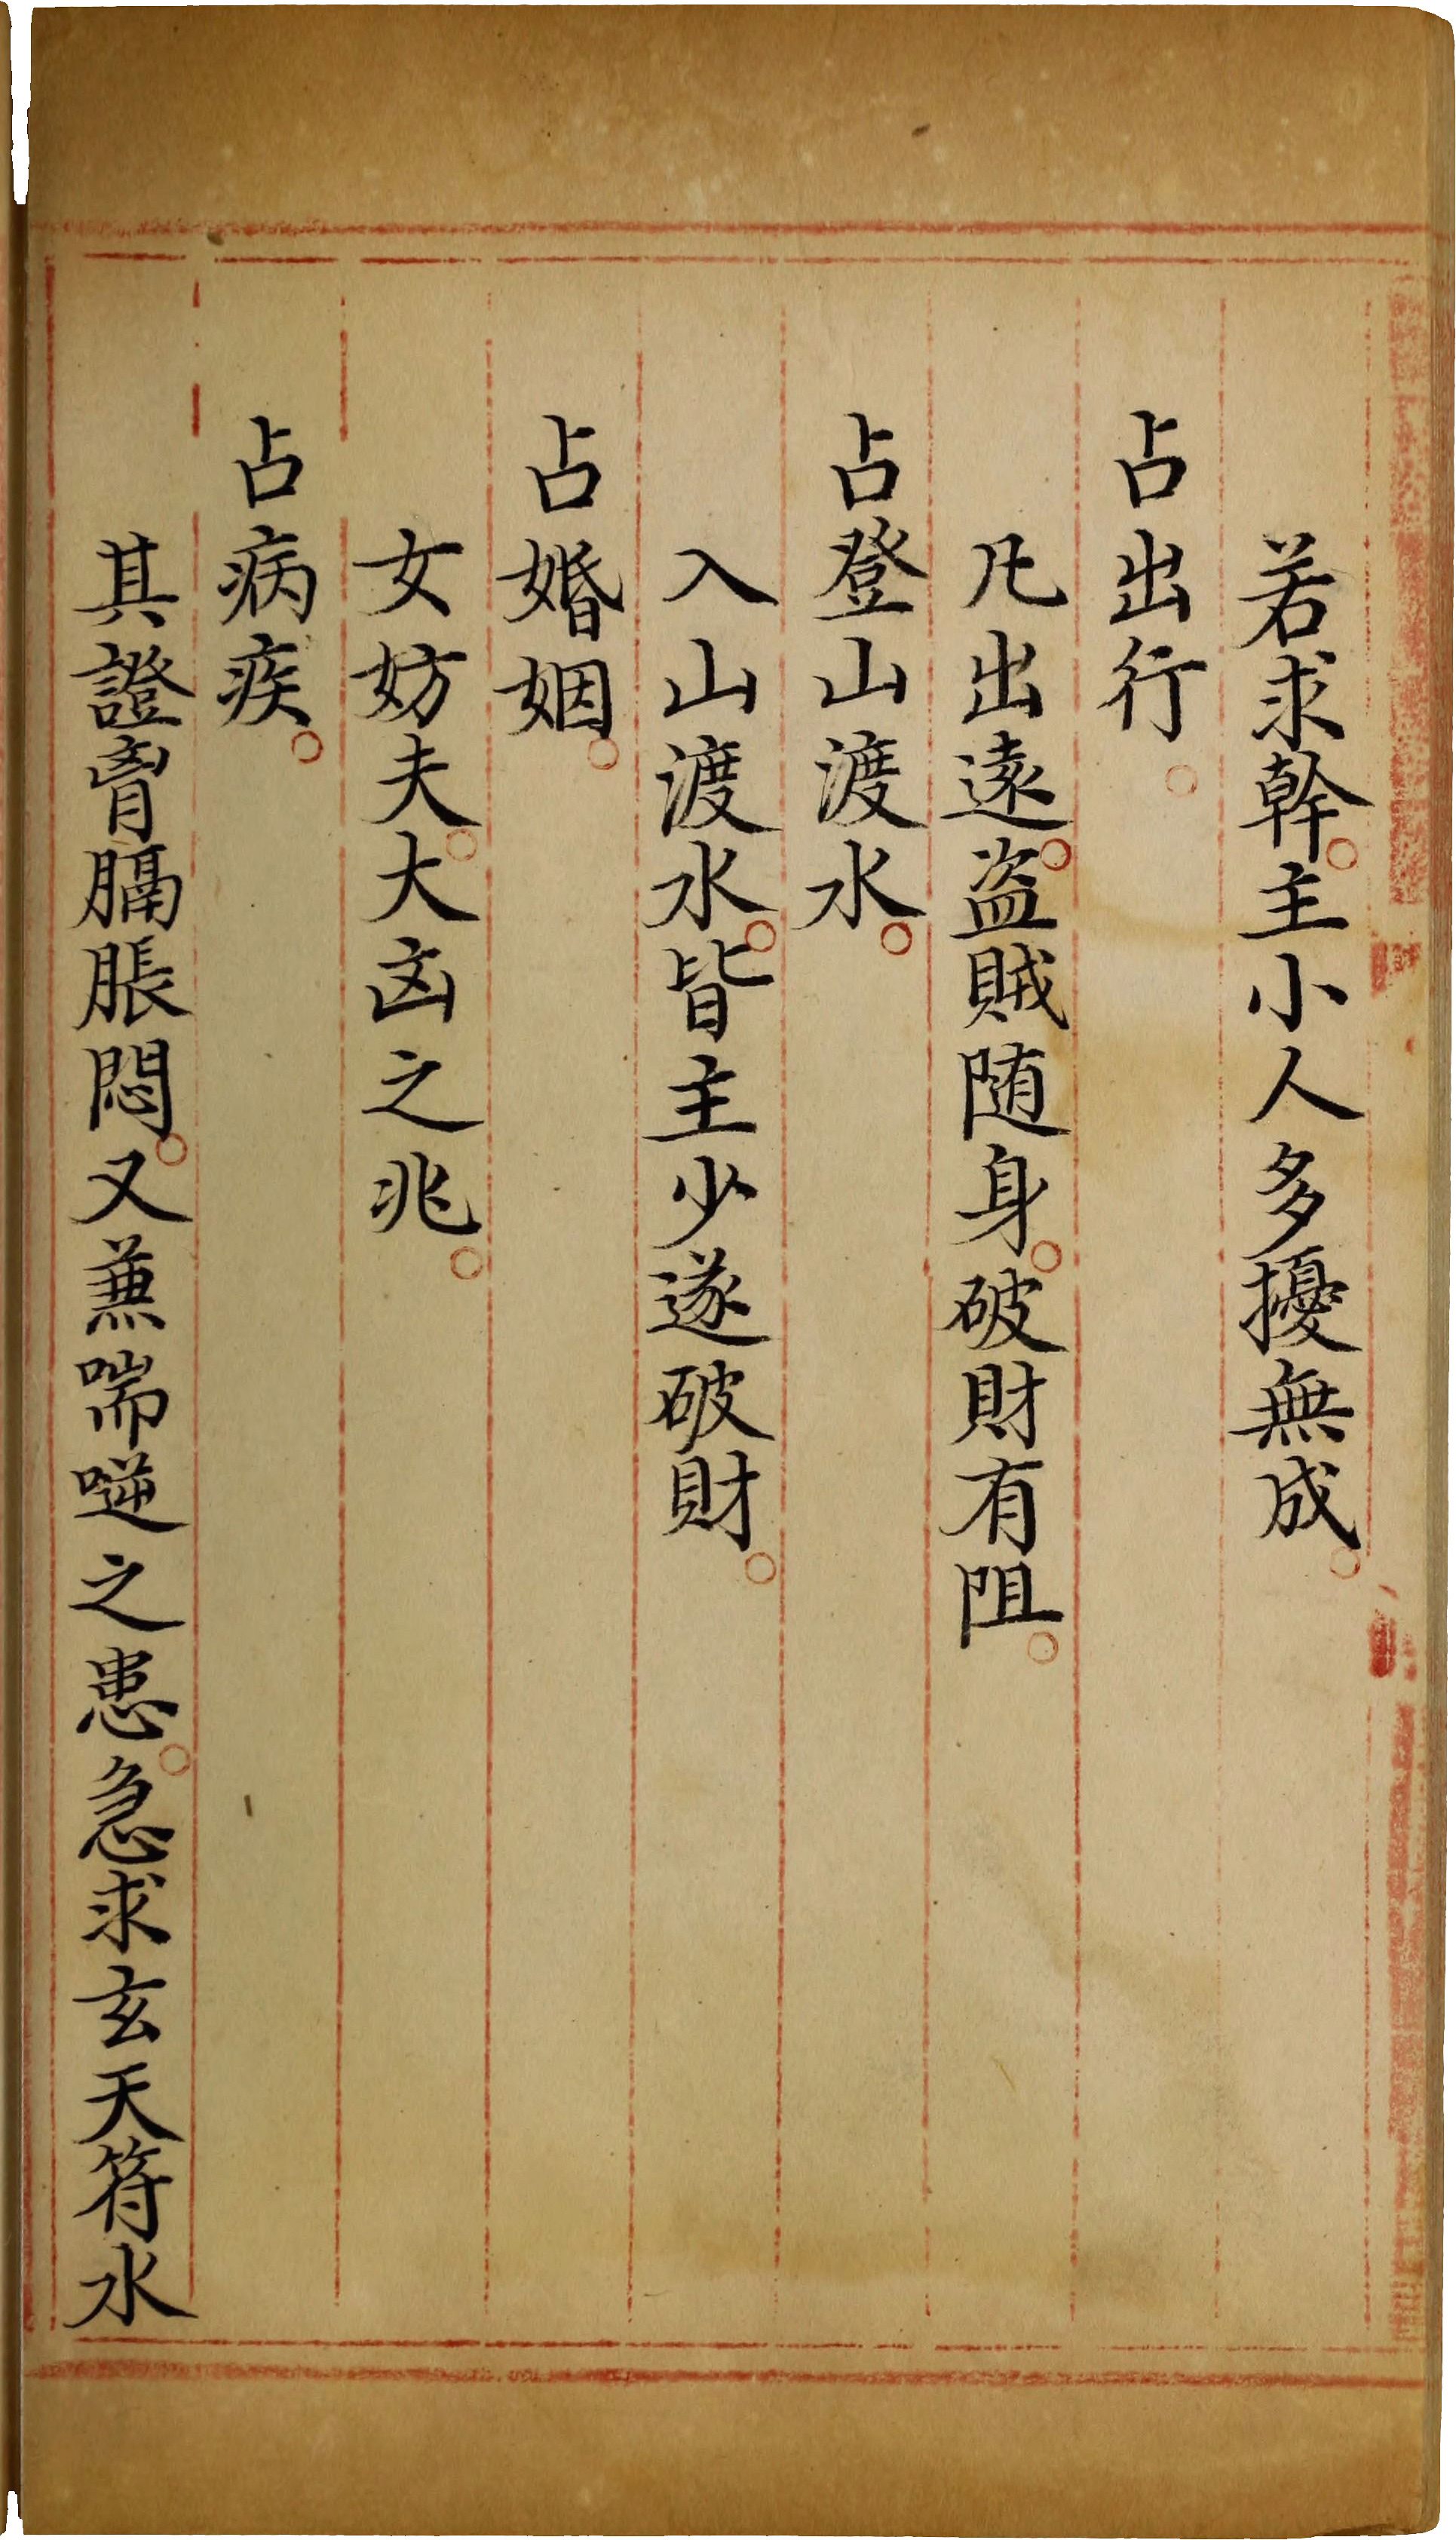 若求幹。主小人多擾無成。
占出行。
凡出遠。盗賊随身。破財有阻。
占登山渡水。
入山渡水。皆主少遂破財。
占婚姻。
女妨夫。大凶之兆。
占病疾。
其證胷膈脹悶。又兼喘噬之患。急求玄天符水